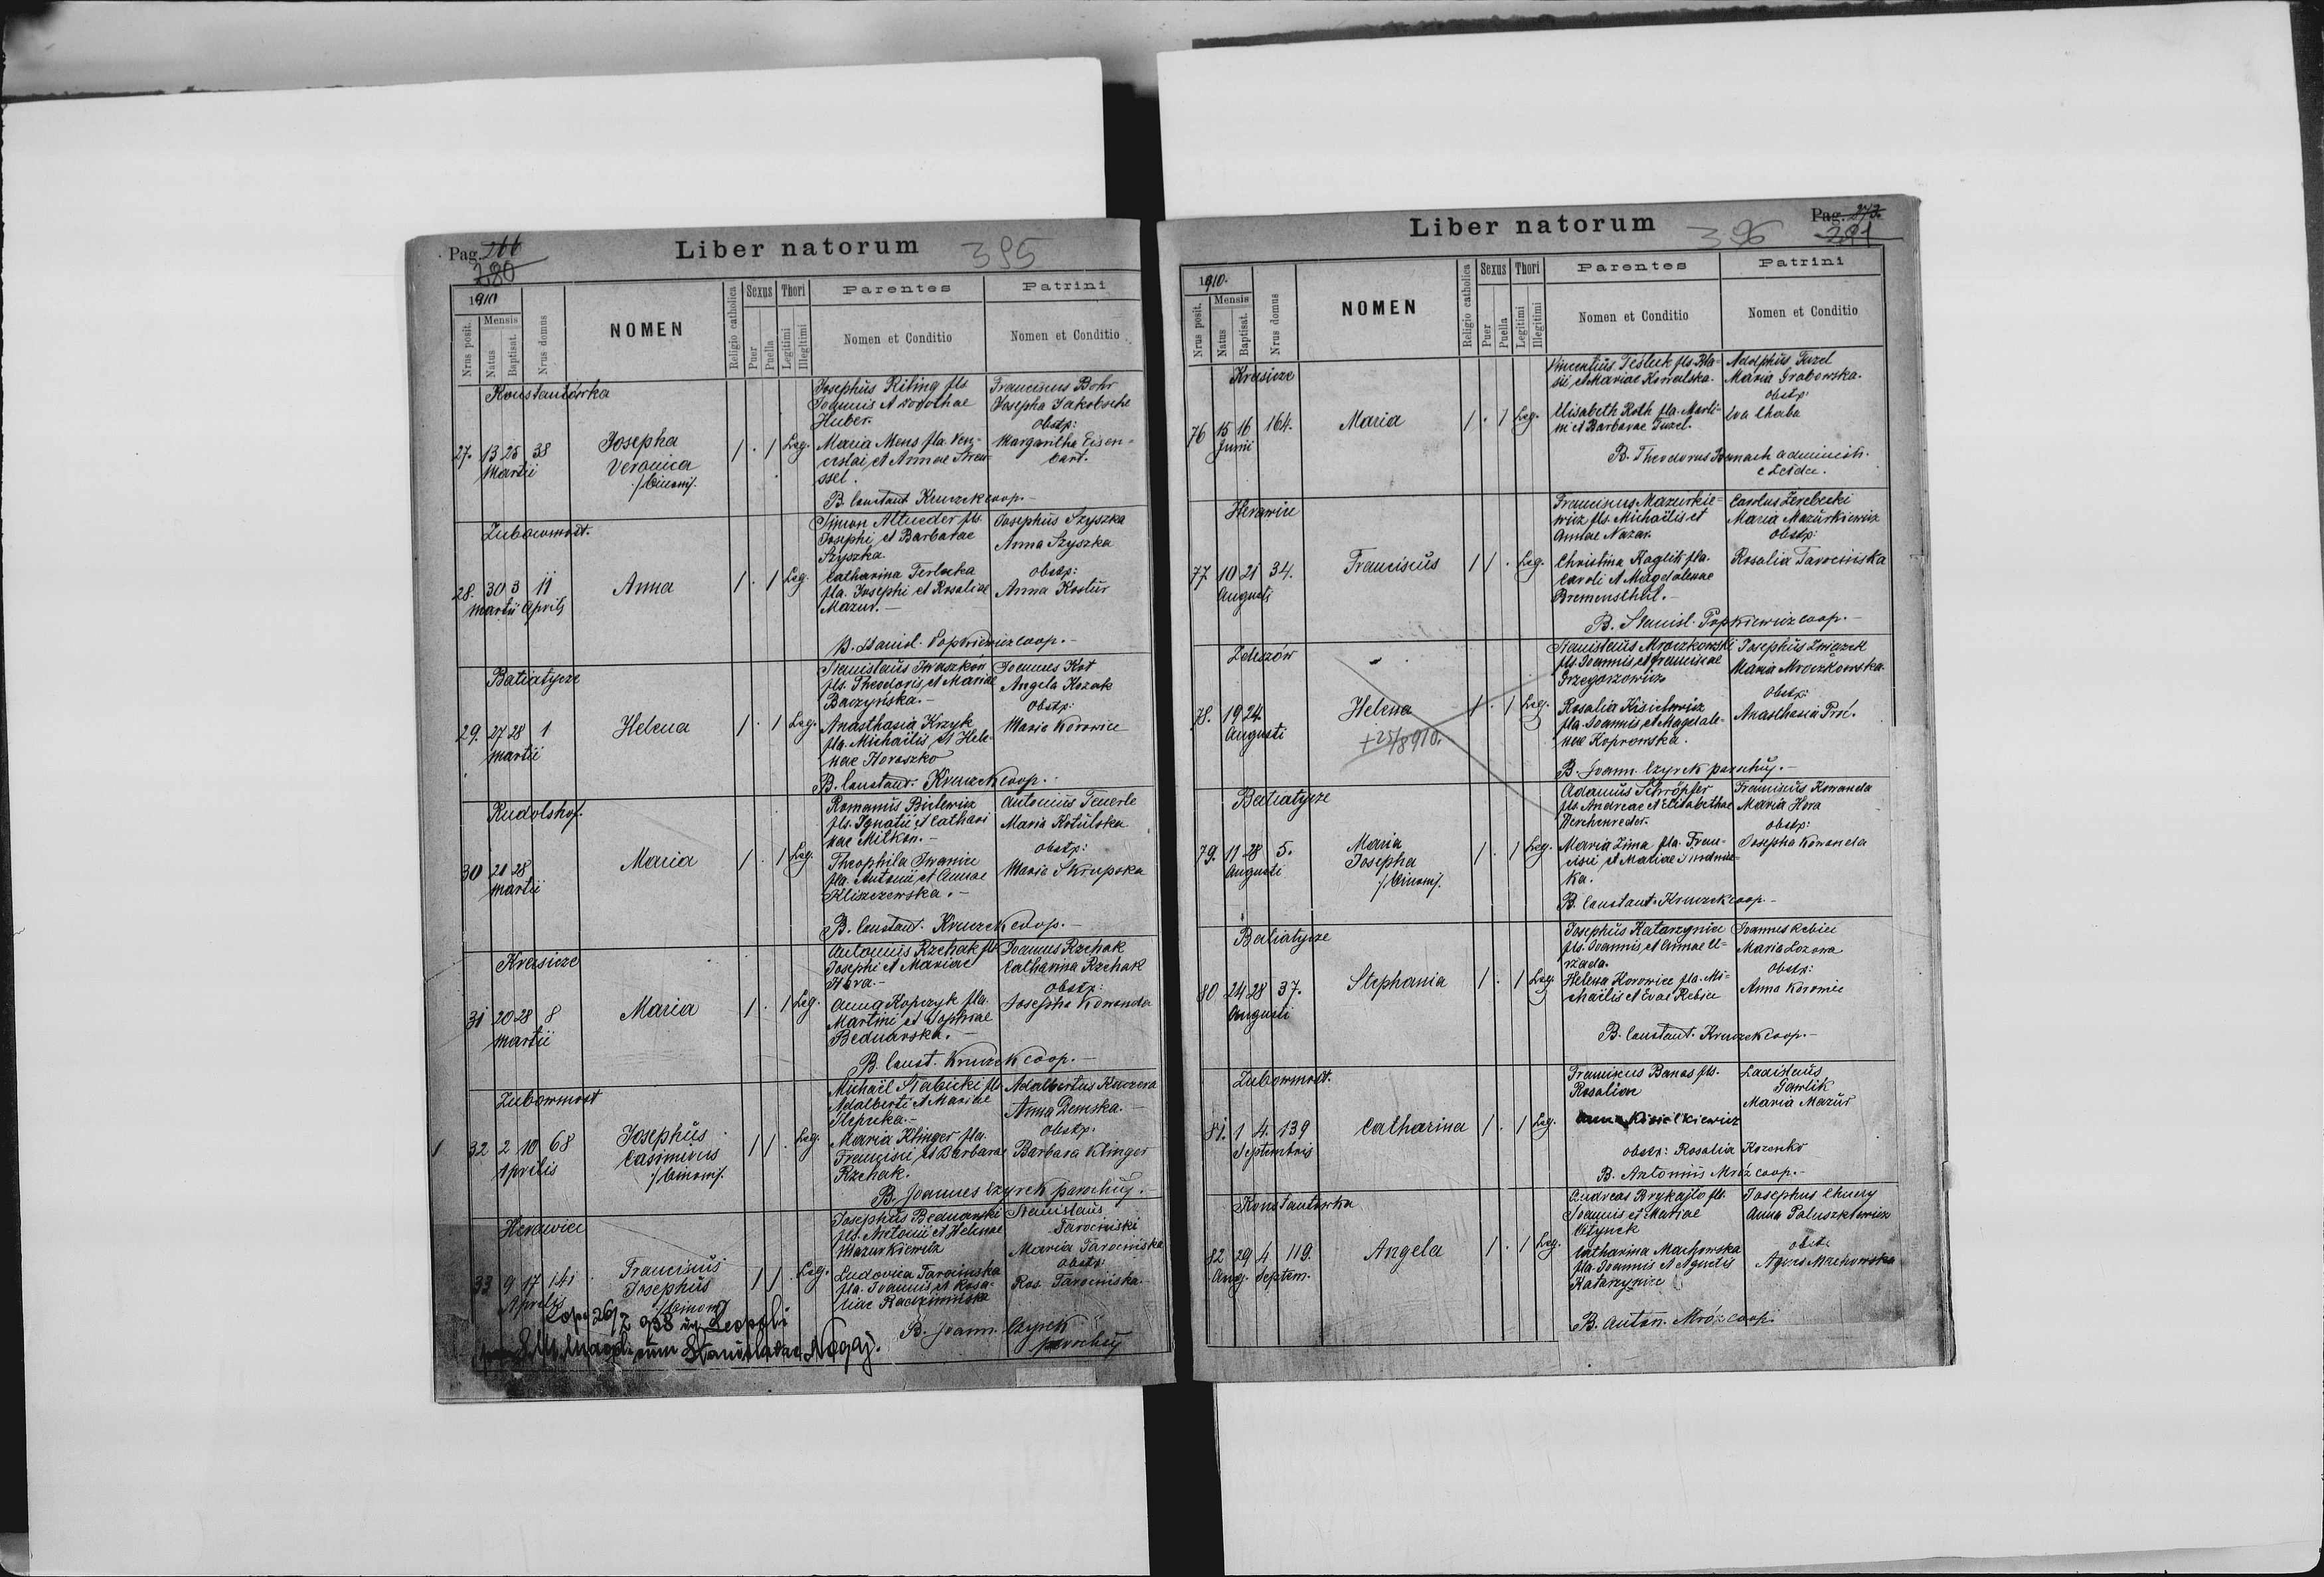 Pag. 266
280
Liber natorum
395
1910
Nrus posit.
Mensis
Natus
Baptisat.
Nrus domus
NOMEN
Religio catholica
Sexus
Puer
Puella
Thori
Legitimi
Illegitimi
Parentes
Nomen et Conditio
Patrini
Nomen et Conditio
Konstantówka
27. 13 25 38
Martii
Josepha
Veronica
/binom/.
1 . 1 Leg.
Josephus Kiling fls.
Joannis et Dorothae
Huber.
Maria Mens fla. Ven-
ceslai, et Annae
ssel.
Franciscus Bohr
Josepha Jakobsche
obstp:
Margaritha Eisen-
bart.
B. Constant Kruczek coop.-
Zubowmost.
28. 30 3 11
Martii Aprilis
Anna
1 . 1 Leg.
Simon Altueder fls.
Josephi et Barbarae
Szyszka.
Catharina Terlecka
fla. Josephi et Rosaliae
Mazur.-
Josephus Szyszka
Anna Szyszka
obstp:
Anna Kostur
B. Stanisl. Popkiewicz coop.-
Batiatycze
29. 27 28 1
Martii
Helena
1 . 1 Leg.
Stanislaus Iwaszków
fls. Theodoris, et Mariae
Baczyńska.-
Anasthasia Krzyk
fla. Michaëlis et Hele-
nae Horoszko
Joannes Kot
Angela Kozak
Obstp:
Maria Korowice
B. Constant. Kruczek coop.-
Rudolshof.
30 21 28
Martii
Maria
1 . 1 Leg.
Romanus Bielewicz
fls. Ignatii, et Cathari
nae Mitkon.-
Theophila Iwanice
fla. Antonii, et Annae
Kliszczewska.-
Antonius Feuerle
Maria Kotulska
obstp:
Maria Skrupska
B. Constant. Kruczek coop.-
Krasicze
31 20 28 8
Martii
Maria
1 . 1 Leg.
Antonius Rzehak fls.
Josephi et Mariae
Hora.-
Anna Kopczyk fla.
Martini et Sophiae
Bednarska.
Joannes Rzehak
Catharina Rzehak
Obstp:
Josepha Koranda
B. Const. Kruczek coop.-
Zubowmost
32 2 10 68
Aprilis
Josephus
Casimirus
/binom/.
1 1 . Leg.
Michaël Stabicki fls.
Adalberti et Mariae
Maria Klinger fla.
Francisci, et Barbarae
Rzehak.
Adalbertus Kuczera
Anna Demska.-
Obstp.
Barbara Klinger
B. Joannes Czyrek parochus.-
Herawice
33 9 17 141
Aprilis
Franciscus
Josephus
/binom/
1 1 . Leg.
Josephus Bednarski
fls. Antonii et Helenae
Mazurkiewicz
Ludovica Tarocinska
fla. Joannis, et Rosa-
liae Raczyminska
Stanislaus
Tarocinski
Maria Tarocinska
obstp:
Ros. Tarocinska
B. Joann. Czyrek
parochus
Cop. 26/2 938 in Leopoli
S. M. Magd. cum Stanislava Nogaj.
Liber natorum
396
Pag. 273.
291
1910.
Nrus posit.
Mensis
Natus
Baptisat.
Nrus domus
NOMEN
Religio catholica
Sexus
Puer
Puella
Thori
Legitimi
Illegitimi
Parentes
Nomen et Conditio
Patrini
Nomen et Conditio
Krasicze
76 15 16 164.
Junii
Maria
1 . 1 Leg.
Vincentius Teśluk fls. Bla-
sii, et Mariae Kowalska.
Elisabeth Roth fla. Marti-
ni et Barbarae Fuzel.
Adolphus Fuzel
Maria Grabowska.
obstp:
Eva Chaba
B. Theodorus administr.
Herawice
77 10 21 34.
Augusti
Franciscus
1 1 . Leg.
Franciscus Mazurkie-
wicz fls. Michaëlis et
Annae Nazar.
Christina Raglitz fla.
Caroli et Magdalenae
Bremensthul.-
Carolus Zerebecki
Maria Mazurkiewicz
obstp:
Rosalia Tarocinska
B. Stanisl. Popkiewicz coop.-
Zelazów
78. 19 24.
Augusti
Helena
+25/8 910.
1 . 1 Leg.
Stanislaus Mroczkowski
fls. Joannis, et Franciscae
Grzegorzowicz
Rosalia Kisielewicz
fla. Joannis, et Magdale-
nae Koprowska.
Josephus Zwiazek
Maria Mroczkowska
Obstp:
Anasthasia Proć.
B. Joann. Czyrek parochus.-
Batiatycze
79. 11 28 5.
Augusti
Maria
Josepha
/binom/.
1 . 1 Leg.
Adamus Schröpfer
fls. Andreae et Elisabethae
Werchenreder.
Maria Zima fla. Fran-
cisci et Mariae
ka.
Franciscus Koranda
Maria Hora
obstp:
Josepha Koranda
B. Constant. Kruczek coop.-
Batiatycze
80 24 28 37.
Augusti
Stephania
1 . 1 Leg.
Josephus Katarzynice
fls. Joannis, et Annae U-
rzada.
Helena Korowice fla. Mi-
chaëlis et Evae Rebice
Joannes Rebice
Maria Lozowa
Obstp:
Anna Korowice
B. Constant. Kruczek coop.-
Zubowmost.
81. 1 4. 139
Septembris
Catharina
1 . 1 Leg.
Franciscus Banas fls.
Rosaliae
Anna Kisielkiewicz
Ladislaus
Gawlik
Maria Mazur
obstr: Rosalia Kozenko
B. Antonius Mróz coop.-
Konstantówka
82 29 4 119.
Aug. Septem.
Angela
1 . 1 Leg.
Andreas Brykajlo fls.
Joannis et Mariae
Catharina Machowska
fla. Joannis et Agnetis
Katarzynice
Josephus Chuery
Anna Paluszkiewicz
obst.
Agnes Machowska
B. Anton. Mróz coop.